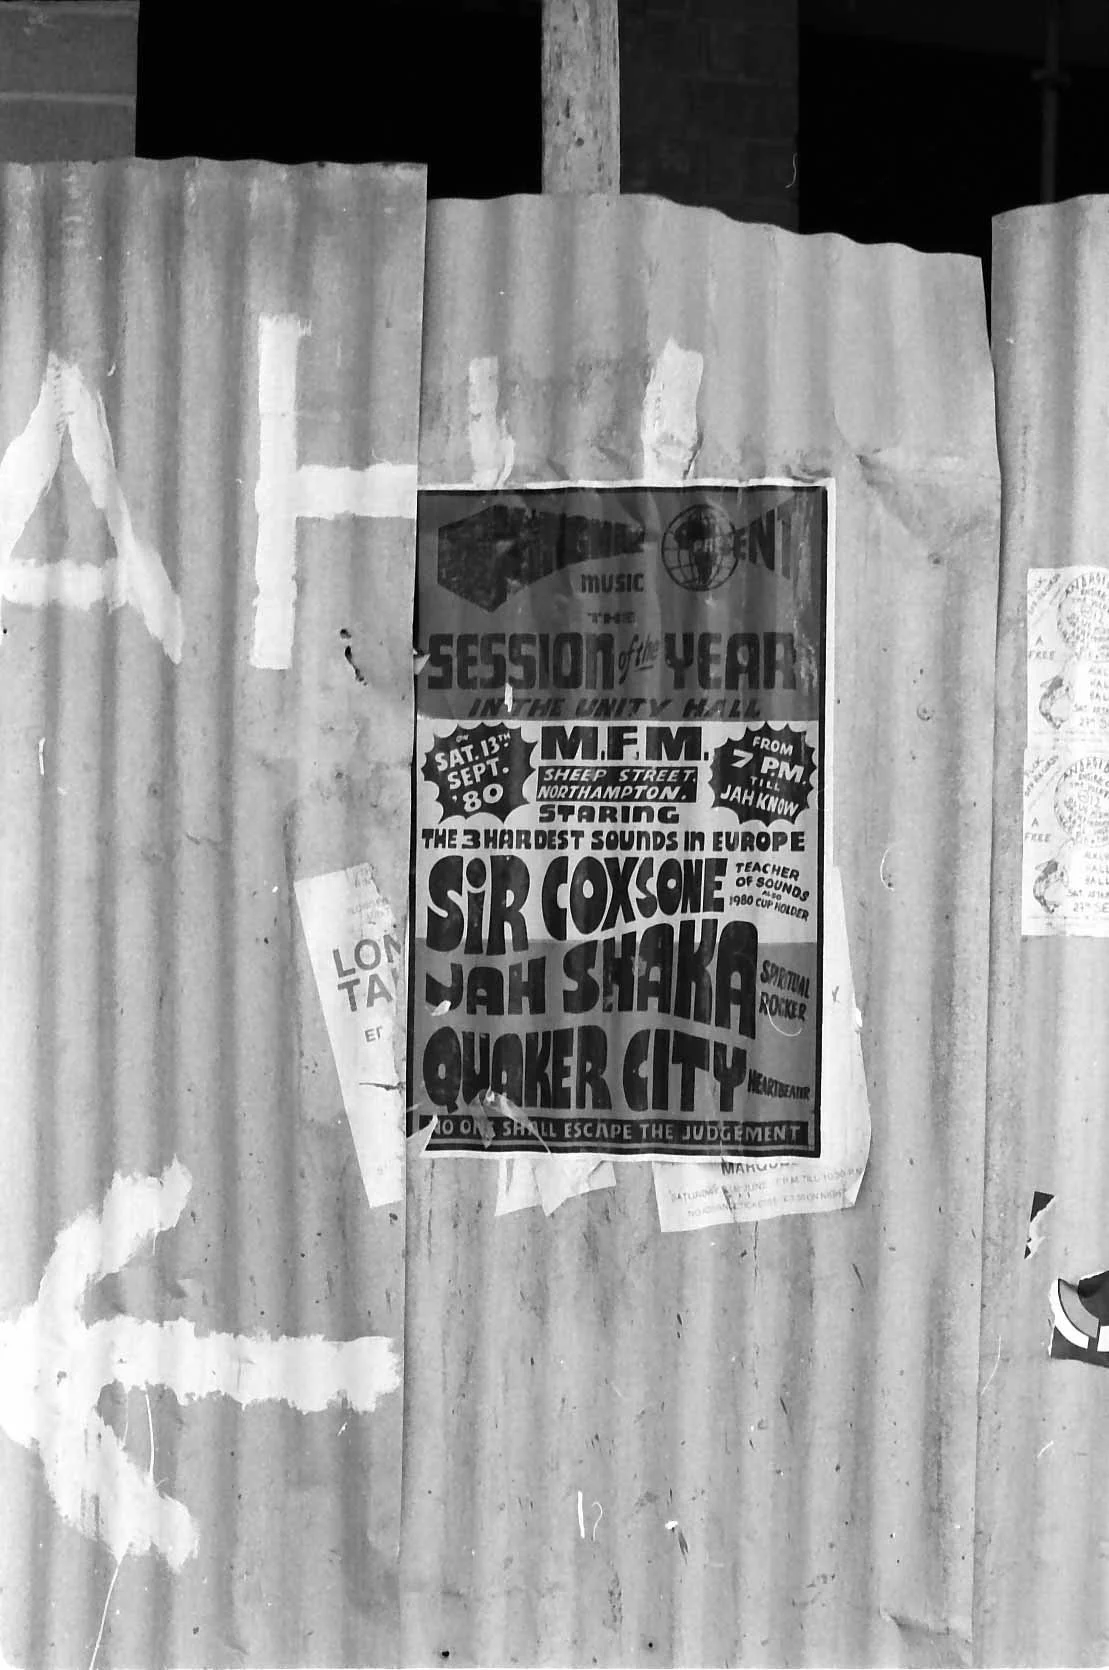 AH
MUSIC
THE
SESSION of the YEAR
IN THE UNITY HALL
ON
SAT. 13TH
SEPT.
'80
M.F.M.
SHEEP STREET.
NORTHAMPTON.
FROM
7 P.M.
TILL
JAH KNOW
STARING
THE 3 HARDEST SOUNDS IN EUROPE
SIR COXSONE
TEACHER
OF SOUNDS
ALSO
1980 CUP HOLDER
JAH SHAKA
SPIRITUAL
ROCKER
QUAKER CITY
HEARTBEATER
NO ONE SHALL ESCAPE THE JUDGEMENT
LON
TA
A
FREE
A
FREE